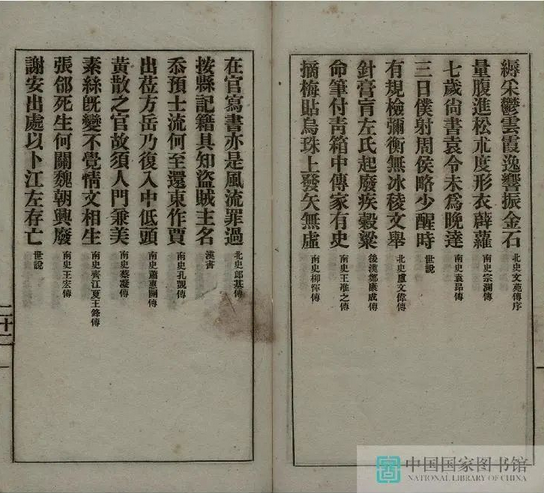 縟采鬱雲霞逸響振金石 北史文苑傳序
量腹進松朮度形衣薜蘿 南史宗測傳
七歲尚書袁令未爲晚達 南史袁昂傳
三日僕射周侯略少醒時 世說
有規檢彌衡無冰稜文舉 北史盧文偉傳
針膏肓左氏起廢疾穀梁 後漢鄭康成傳
命筆付青箱中傳家有史 南史王淮之傳
摘梅貼烏珠上發矢無虛 南史柳惲傳
在官寫書亦是風流罪過 北史郎基傳
按縣記籍具知盜賊主名 漢書
忝預士流何至還東作賈 南史孔覬傳
出莅方岳乃復入中低頭 南史蕭惠開傳
黃散之官故須人門兼美 南史蔡凝傳
素絲既變不覺情文相生 南史齊江夏王鋒傳
張郃死生何關魏朝興廢 南史王宏傳
謝安出處以卜江左存亡 世說
中国国家图书馆
NATIONAL LIBRARY OF CHINA